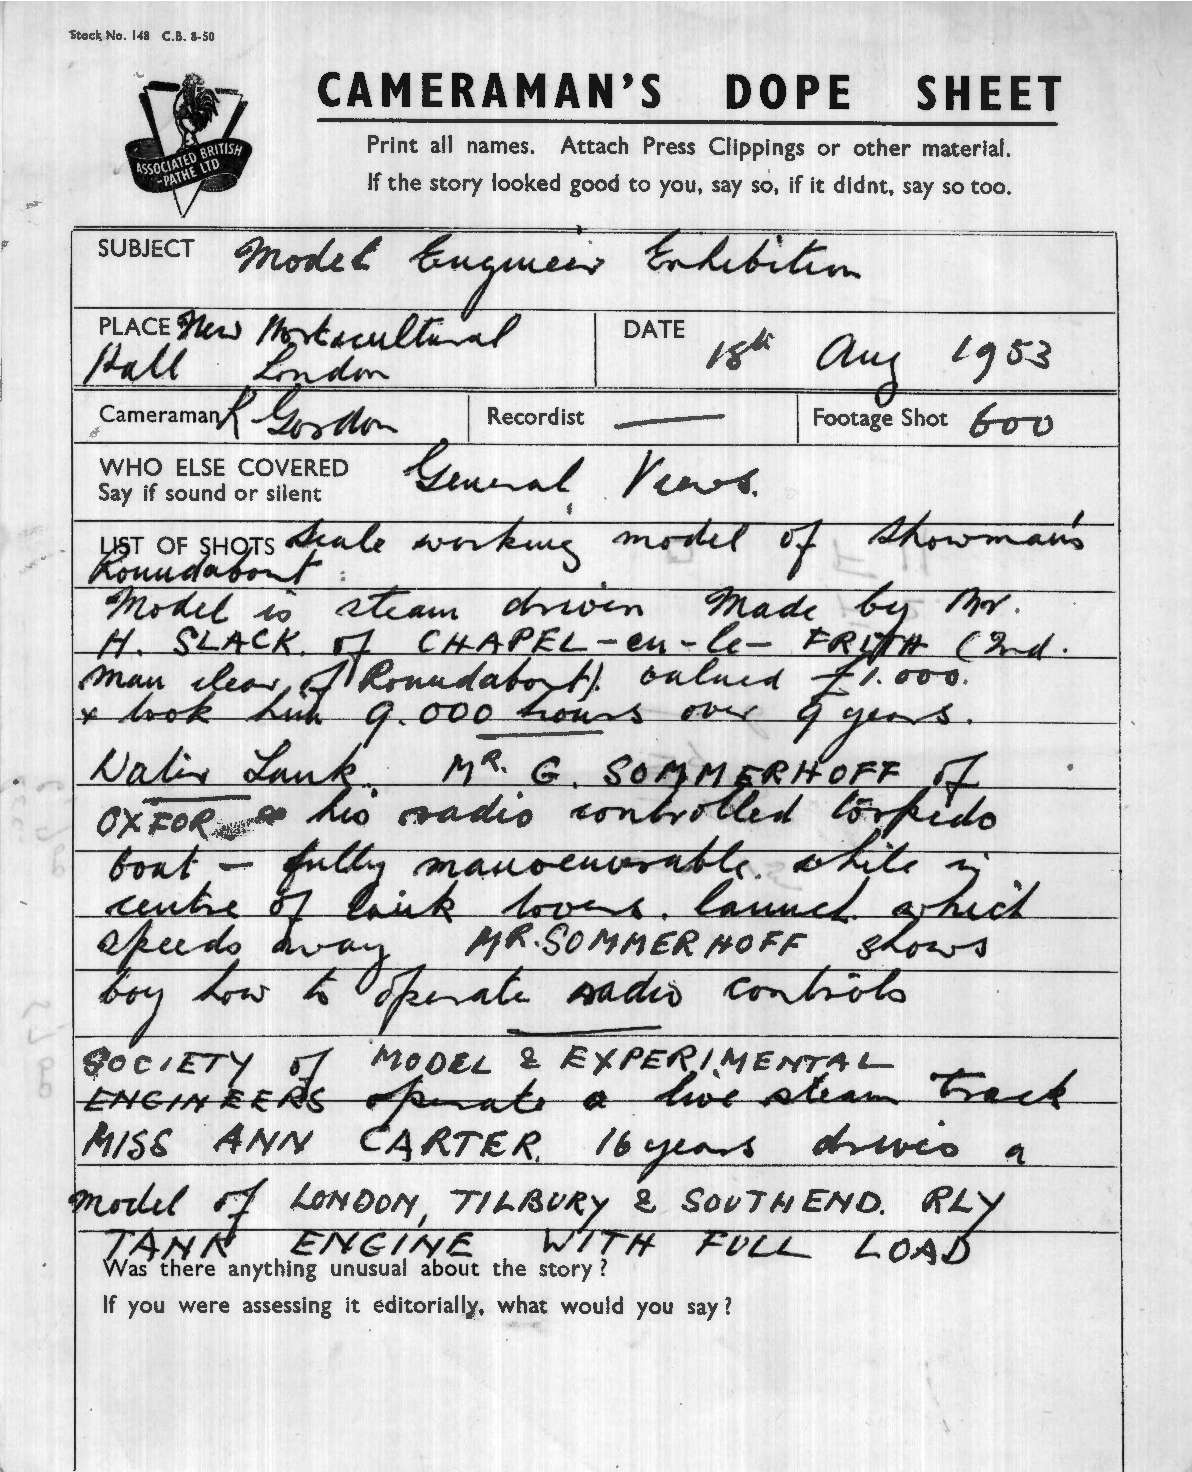 Stock No. 148 C.B. 8-50
CAMERAMAN'S DOPE SHEET
ASSOCIATED BRITISH
-PATHE LTD
Print all names. Attach Press Clippings or other material.
If the story looked good to you, say so, if it didnt, say so too.
SUBJECT Model Engineer Exhibition
PLACE New Hortacultural
Hall London
DATE 18th Aug 1953
Cameraman R Gordon
Recordist —
Footage Shot 600
WHO ELSE COVERED General Views.
Say if sound or silent
LIST OF SHOTS Scale working model of Showman's
Roundabout.
Model is steam driven Made by Mr.
H. SLACK. of CHAPEL-en-le-FRITH (2nd.
man clear of Roundabout). valued £1.000.
& took him 9.000 hours over 9 years.
Water Tank. MR. G. SOMMERHOFF of
OXFOR his radio controlled torpedo
boat - fully manoeuverable. while in
centre of tank lowers. launch. which
speeds away MR. SOMMERHOFF shows
boy how to operate radio controls
SOCIETY of MODEL & EXPERIMENTAL
ENGINEERS operate a live steam track
MISS ANN CARTER. 16 years drives a
model of LONDON, TILBURY & SOUTHEND. RLY
TANK ENGINE WITH FULL LOAD
Was there anything unusual about the story?
If you were assessing it editorially, what would you say?